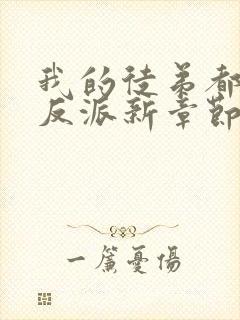 我的徒弟都
反派新章節
一簾憂傷